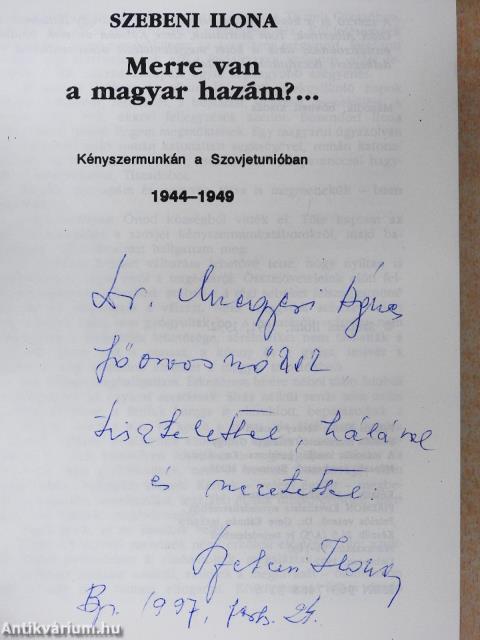 SZEBENI ILONA
Merre van
a magyar hazám?...
Kényszermunkán a Szovjetunióban
1944–1949
Dr. Megyeri Ágnes
főorvosnőnek
tisztelettel, hálával
és szeretettel:
Szebeni Ilona
Bp. 1997. febr. 24.
Antikvárium.hu